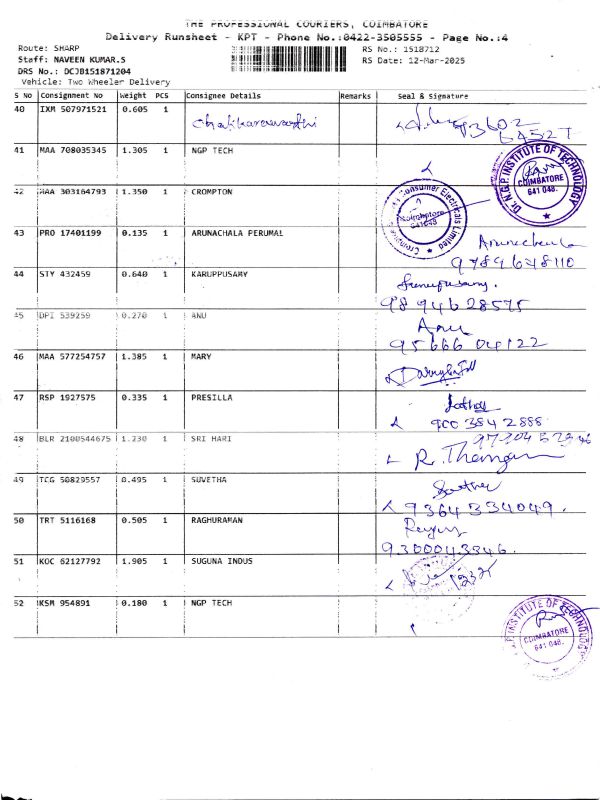 THE PROFESSIONAL COURIERS, COIMBATORE
Delivery Runsheet - KPT - Phone No.:0422-3505555 - Page No.:4
Route: SHARP
RS No.: 1518712
Staff: NAVEEN KUMAR.S
RS Date: 12-Mar-2025
DRS No.: DCJB151871204
Vehicle: Two Wheeler Delivery
S No Consignment No Weight PCS Consignee Details Remarks Seal & Signature
40 IXM 507971521 0.605 1 Chakharavarthi 93602 64527
41 MAA 708035345 1.305 1 NGP TECH
Dr. N.G.P. INSTITUTE OF TECHNOLOGY COIMBATORE 641 048.
42 MAA 303164793 1.350 1 CROMPTON
Consumer Electricals Limited Coimbatore 641048
43 PRO 17401199 0.135 1 ARUNACHALA PERUMAL Arunachala
9789678110
44 STY 432459 0.640 1 KARUPPUSAMY
98946 28575
45 DPI 539259 0.270 1 ANU Anu
95666 04122
46 MAA 577254757 1.385 1 MARY
47 RSP 1927575 0.335 1 PRESILLA
900 3842888
48 BLR 2100544675 1.230 1 SRI HARI
R. Thangam
49 TCG 50829557 0.495 1 SUVETHA
9364334049.
50 TRT 5116168 0.505 1 RAGHURAMAN
9300043346.
51 KOC 62127792 1.905 1 SUGUNA INDUS
52 KSM 954891 0.180 1 NGP TECH
N.G.P. INSTITUTE OF TECHNOLOGY COIMBATORE 641 048.